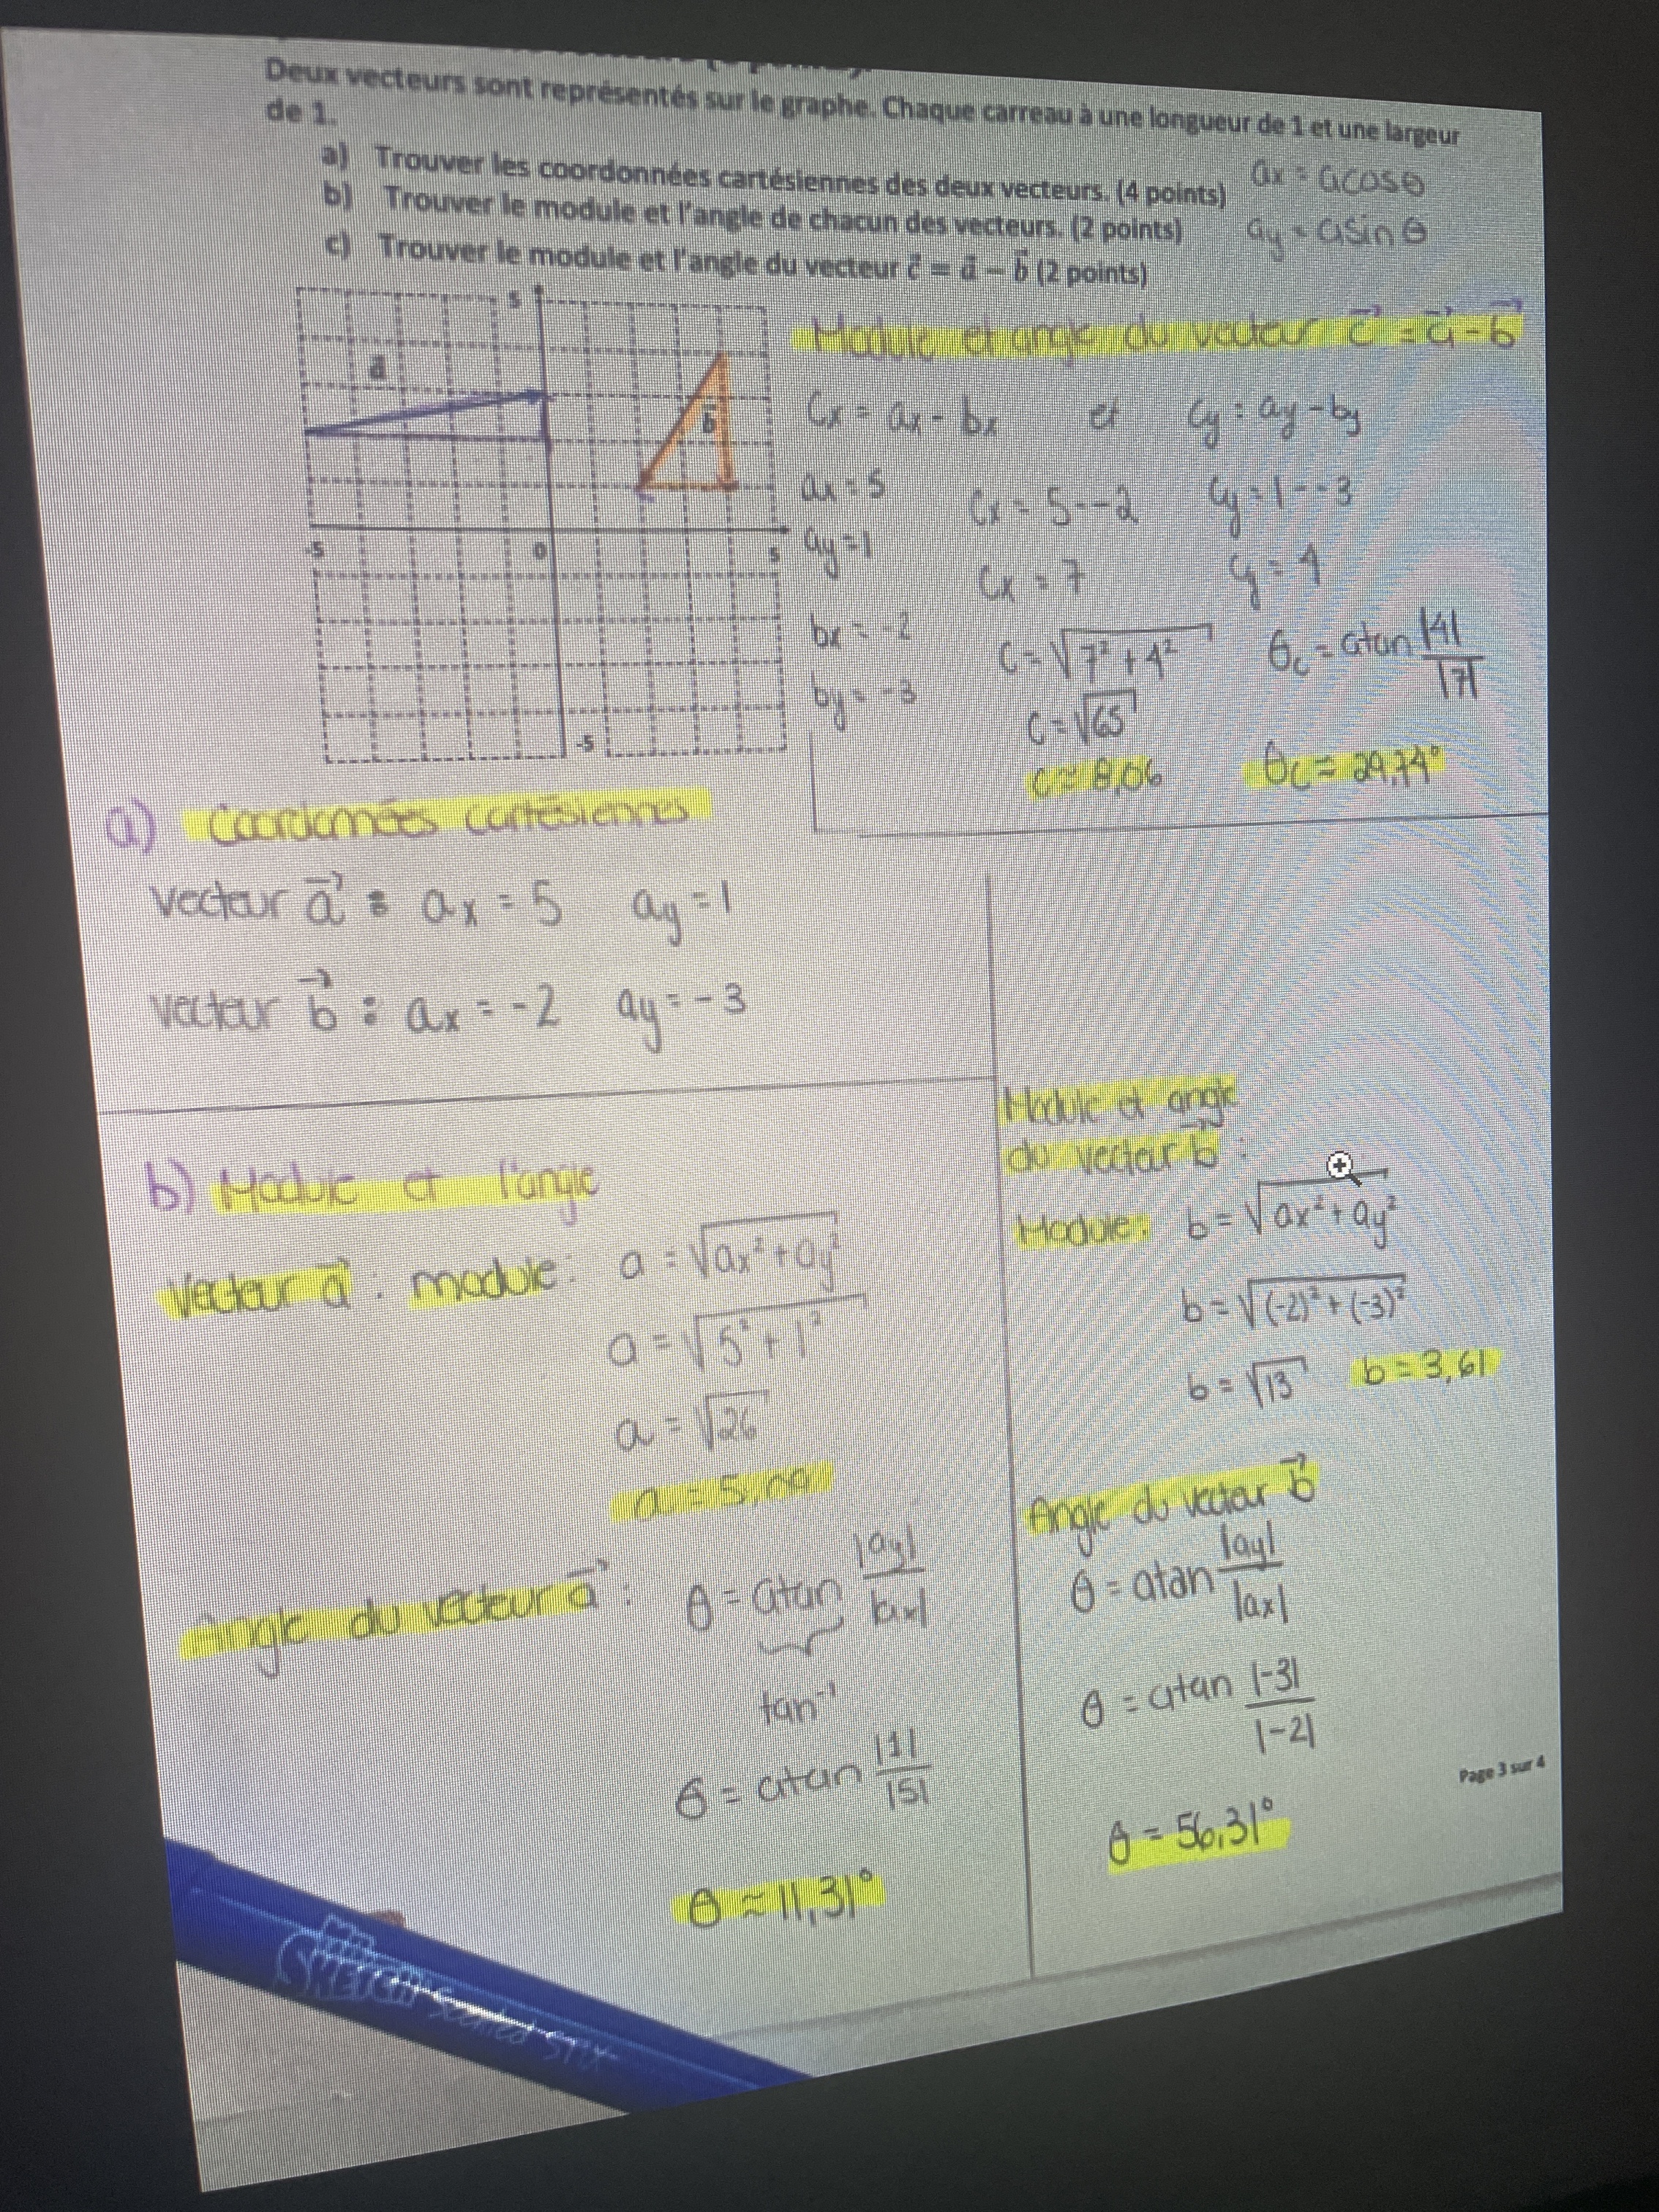 Deux vecteurs sont représentés sur le graphe. Chaque carreau à une longueur de 1 et une largeur
de 1.
a) Trouver les coordonnées cartésiennes des deux vecteurs. (4 points)
ax = acosθ
b) Trouver le module et l'angle de chacun des vecteurs. (2 points)
ay = asinθ
c) Trouver le module et l'angle du vecteur c⃗ = a⃗ − b⃗ (2 points)
5
a⃗
b⃗
-5 0 5
-5
Module et angle du vecteur c⃗ = a⃗ - b⃗
Cx = ax - bx et Cy = ay - by
ax = 5
ay = 1
bx = -2
by = -3
Cx = 5--2 Cy = 1--3
Cx = 7 Cy = 4
C = √7² + 4² θc = atan |4| / |7|
C = √65
C ≈ 8,06 θc = 29,74°
a) Coordonnées cartésiennes
Vecteur a⃗ : ax = 5 ay = 1
Vecteur b⃗ : ax = -2 ay = -3
b) Module et l'angle
Vecteur a⃗ : module : a = √ax² + ay²
a = √5² + 1²
a = √26
a = 5,09
Angle du vecteur a⃗ : θ = atan |ay| / |ax|
tan⁻¹
θ = atan |1| / |5|
θ ≈ 11,31°
Module et angle
du vecteur b⃗ :
Module : b = √ax² + ay²
b = √(-2)² + (-3)²
b = √13 b = 3,61
Angle du vecteur b⃗
θ = atan |ay| / |ax|
θ = atan |-3| / |-2|
θ = 56,31°
Page 3 sur 4
Scented